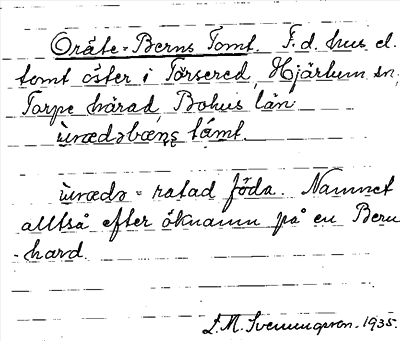 Oräte-Berns Tomt. F.d. hus el.
tomt öster i Torsered, Hjärtum sn,
Torpe härad, Bohus län
ùrædəbæṇṣ támt.
ùrædə = ratad föda. Namnet
alltså efter öknamn på en Bern
-hard.
S. M. Svenungsson. 1935.